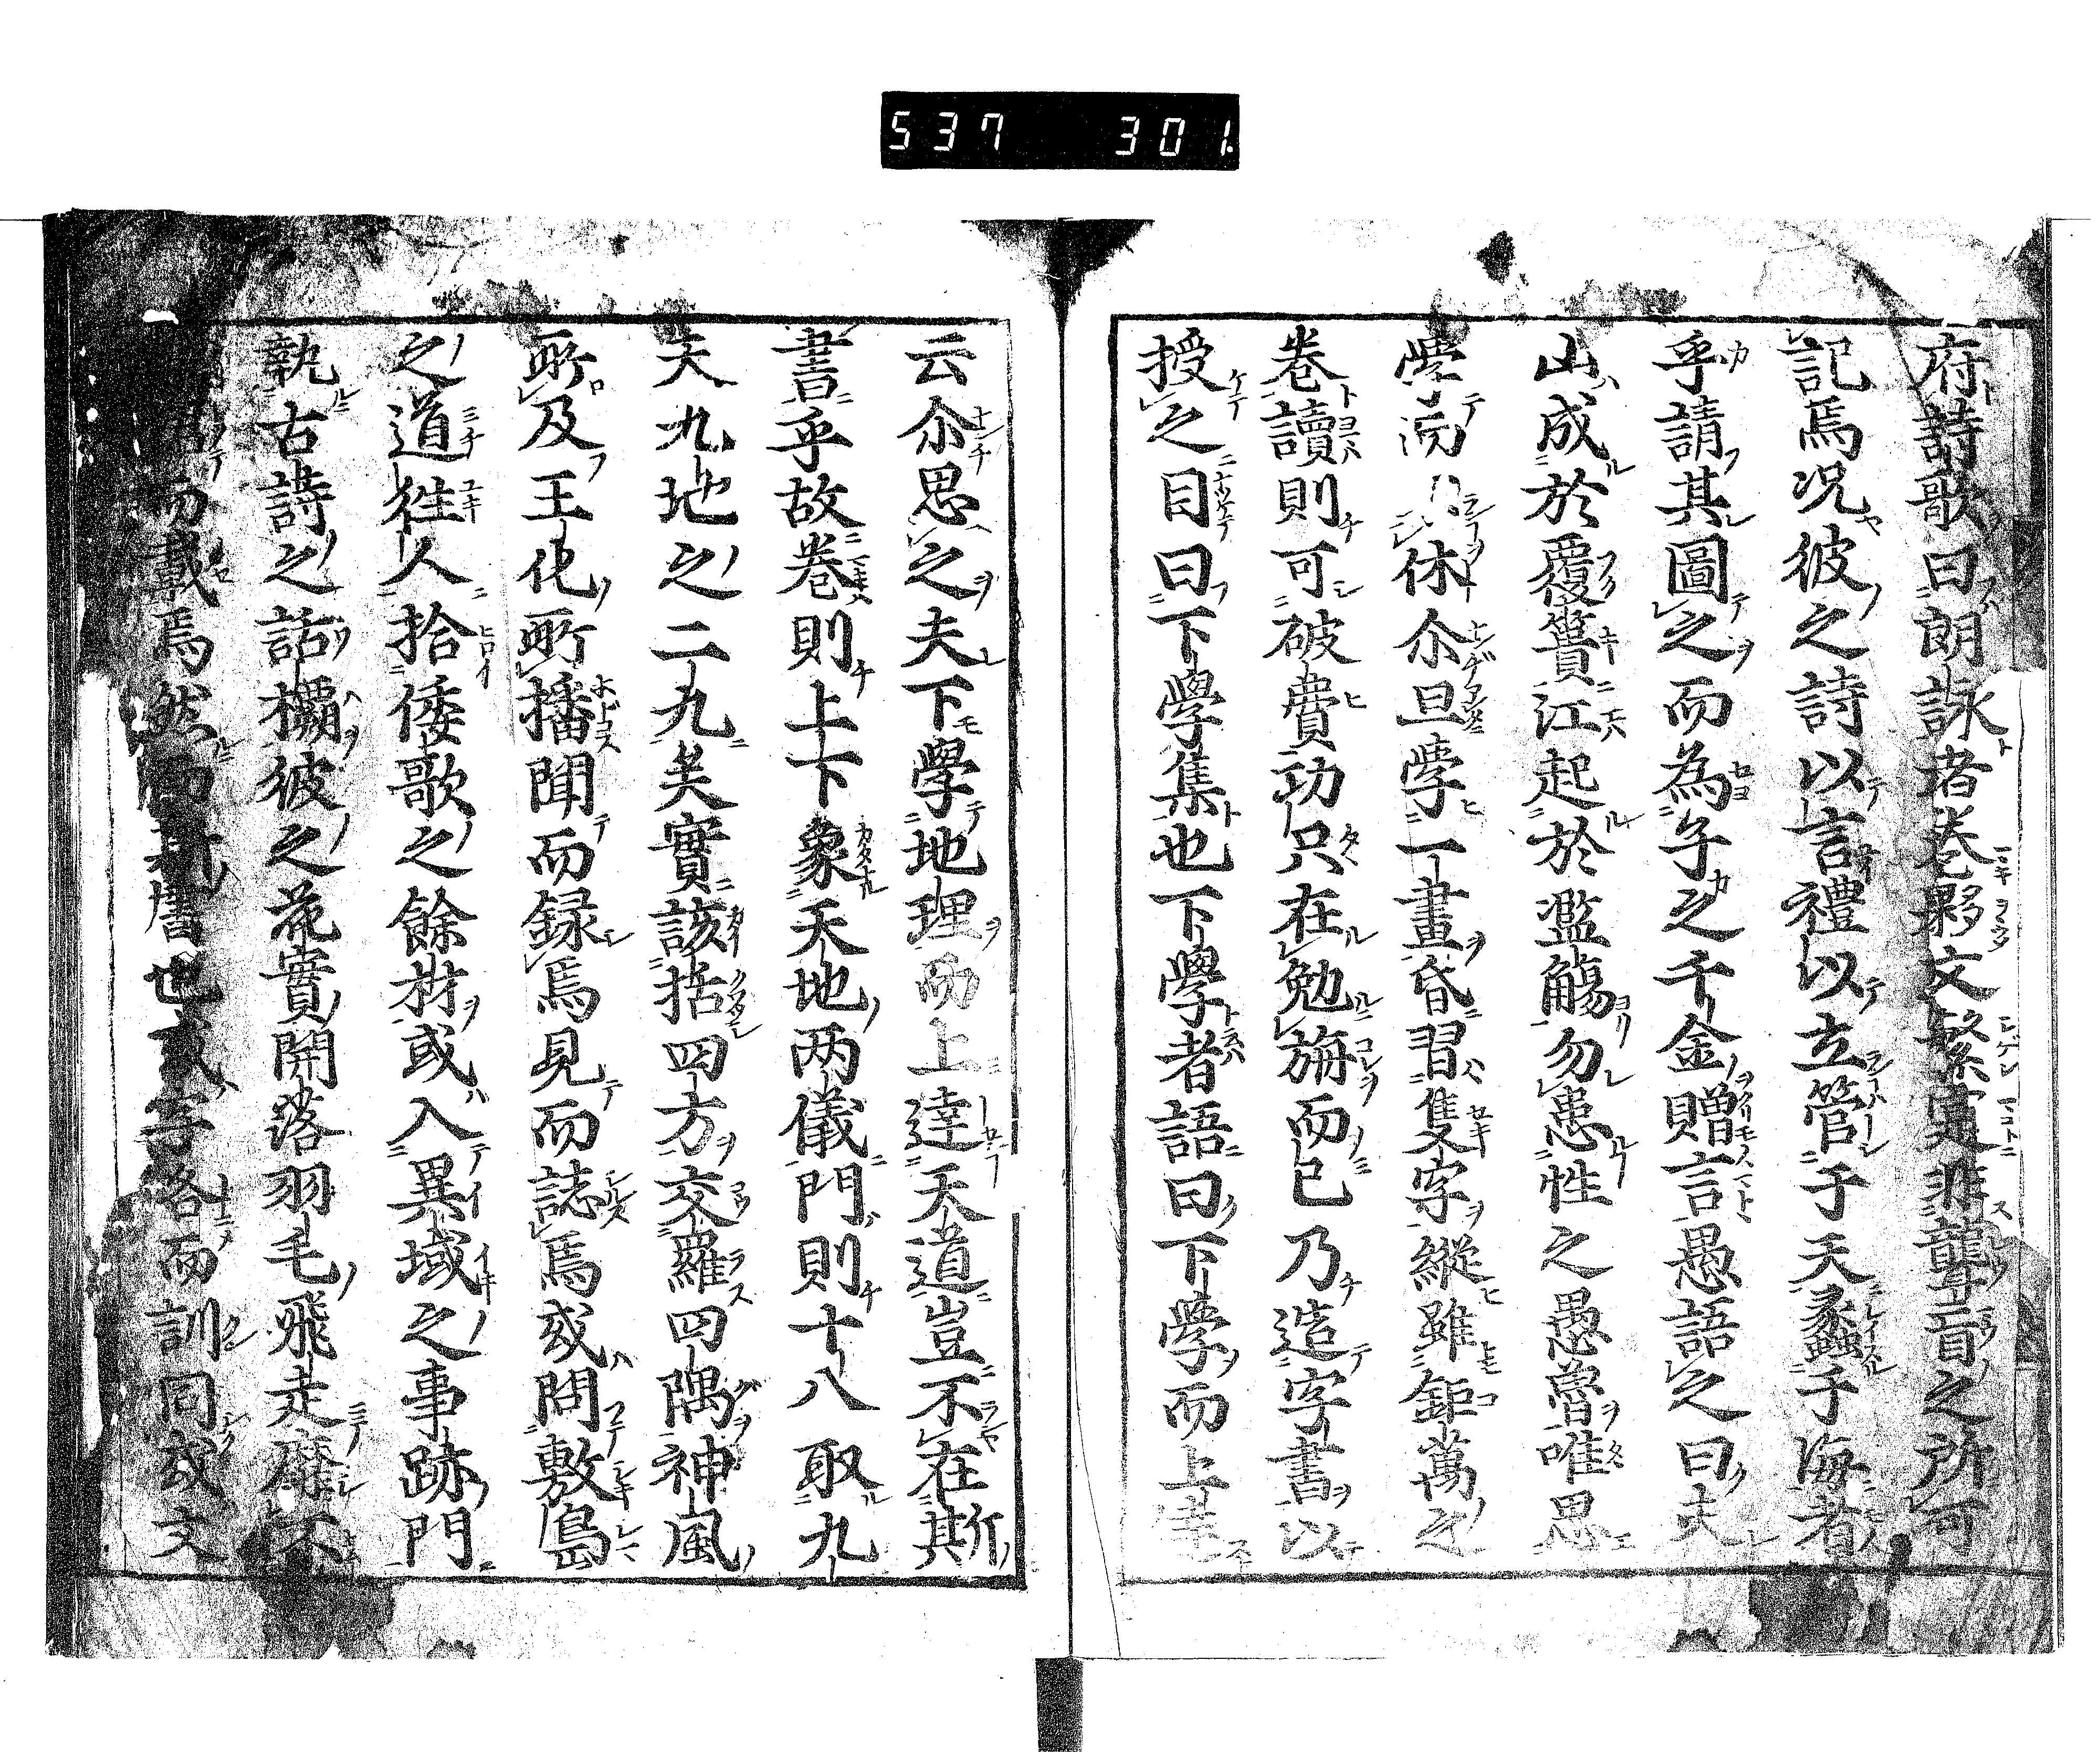 537 301
府詩歌曰朗詠者巻夥文繁寔非聾盲之所可
記焉況彼之詩以言禮以立管于天蠡于海者
乎請其圖之而為予之千金贈言愚語之曰夫
山成於覆簣江起於濫觴勿患性之愚魯唯思
學 休尒旦学一畫昏習隻字縦雖鉅萬之
巻讀則可破費功只在勉旃而已乃造字書以
授之目曰下學集也下學者語曰下学而上達
云尒思之夫下學地理而上達天道豈不在斯
書乎故巻則上下象天地两儀門則十八取九
天九地之二九矣實該括四方交羅四隅神風
所及王化所播聞而録焉見而誌焉或問敷島
之道徃人拾倭歌之餘材或入異域之事跡門
執古詩之話欛彼之花實開落羽毛飛走靡不
而載焉然而 也或字 而訓同或文